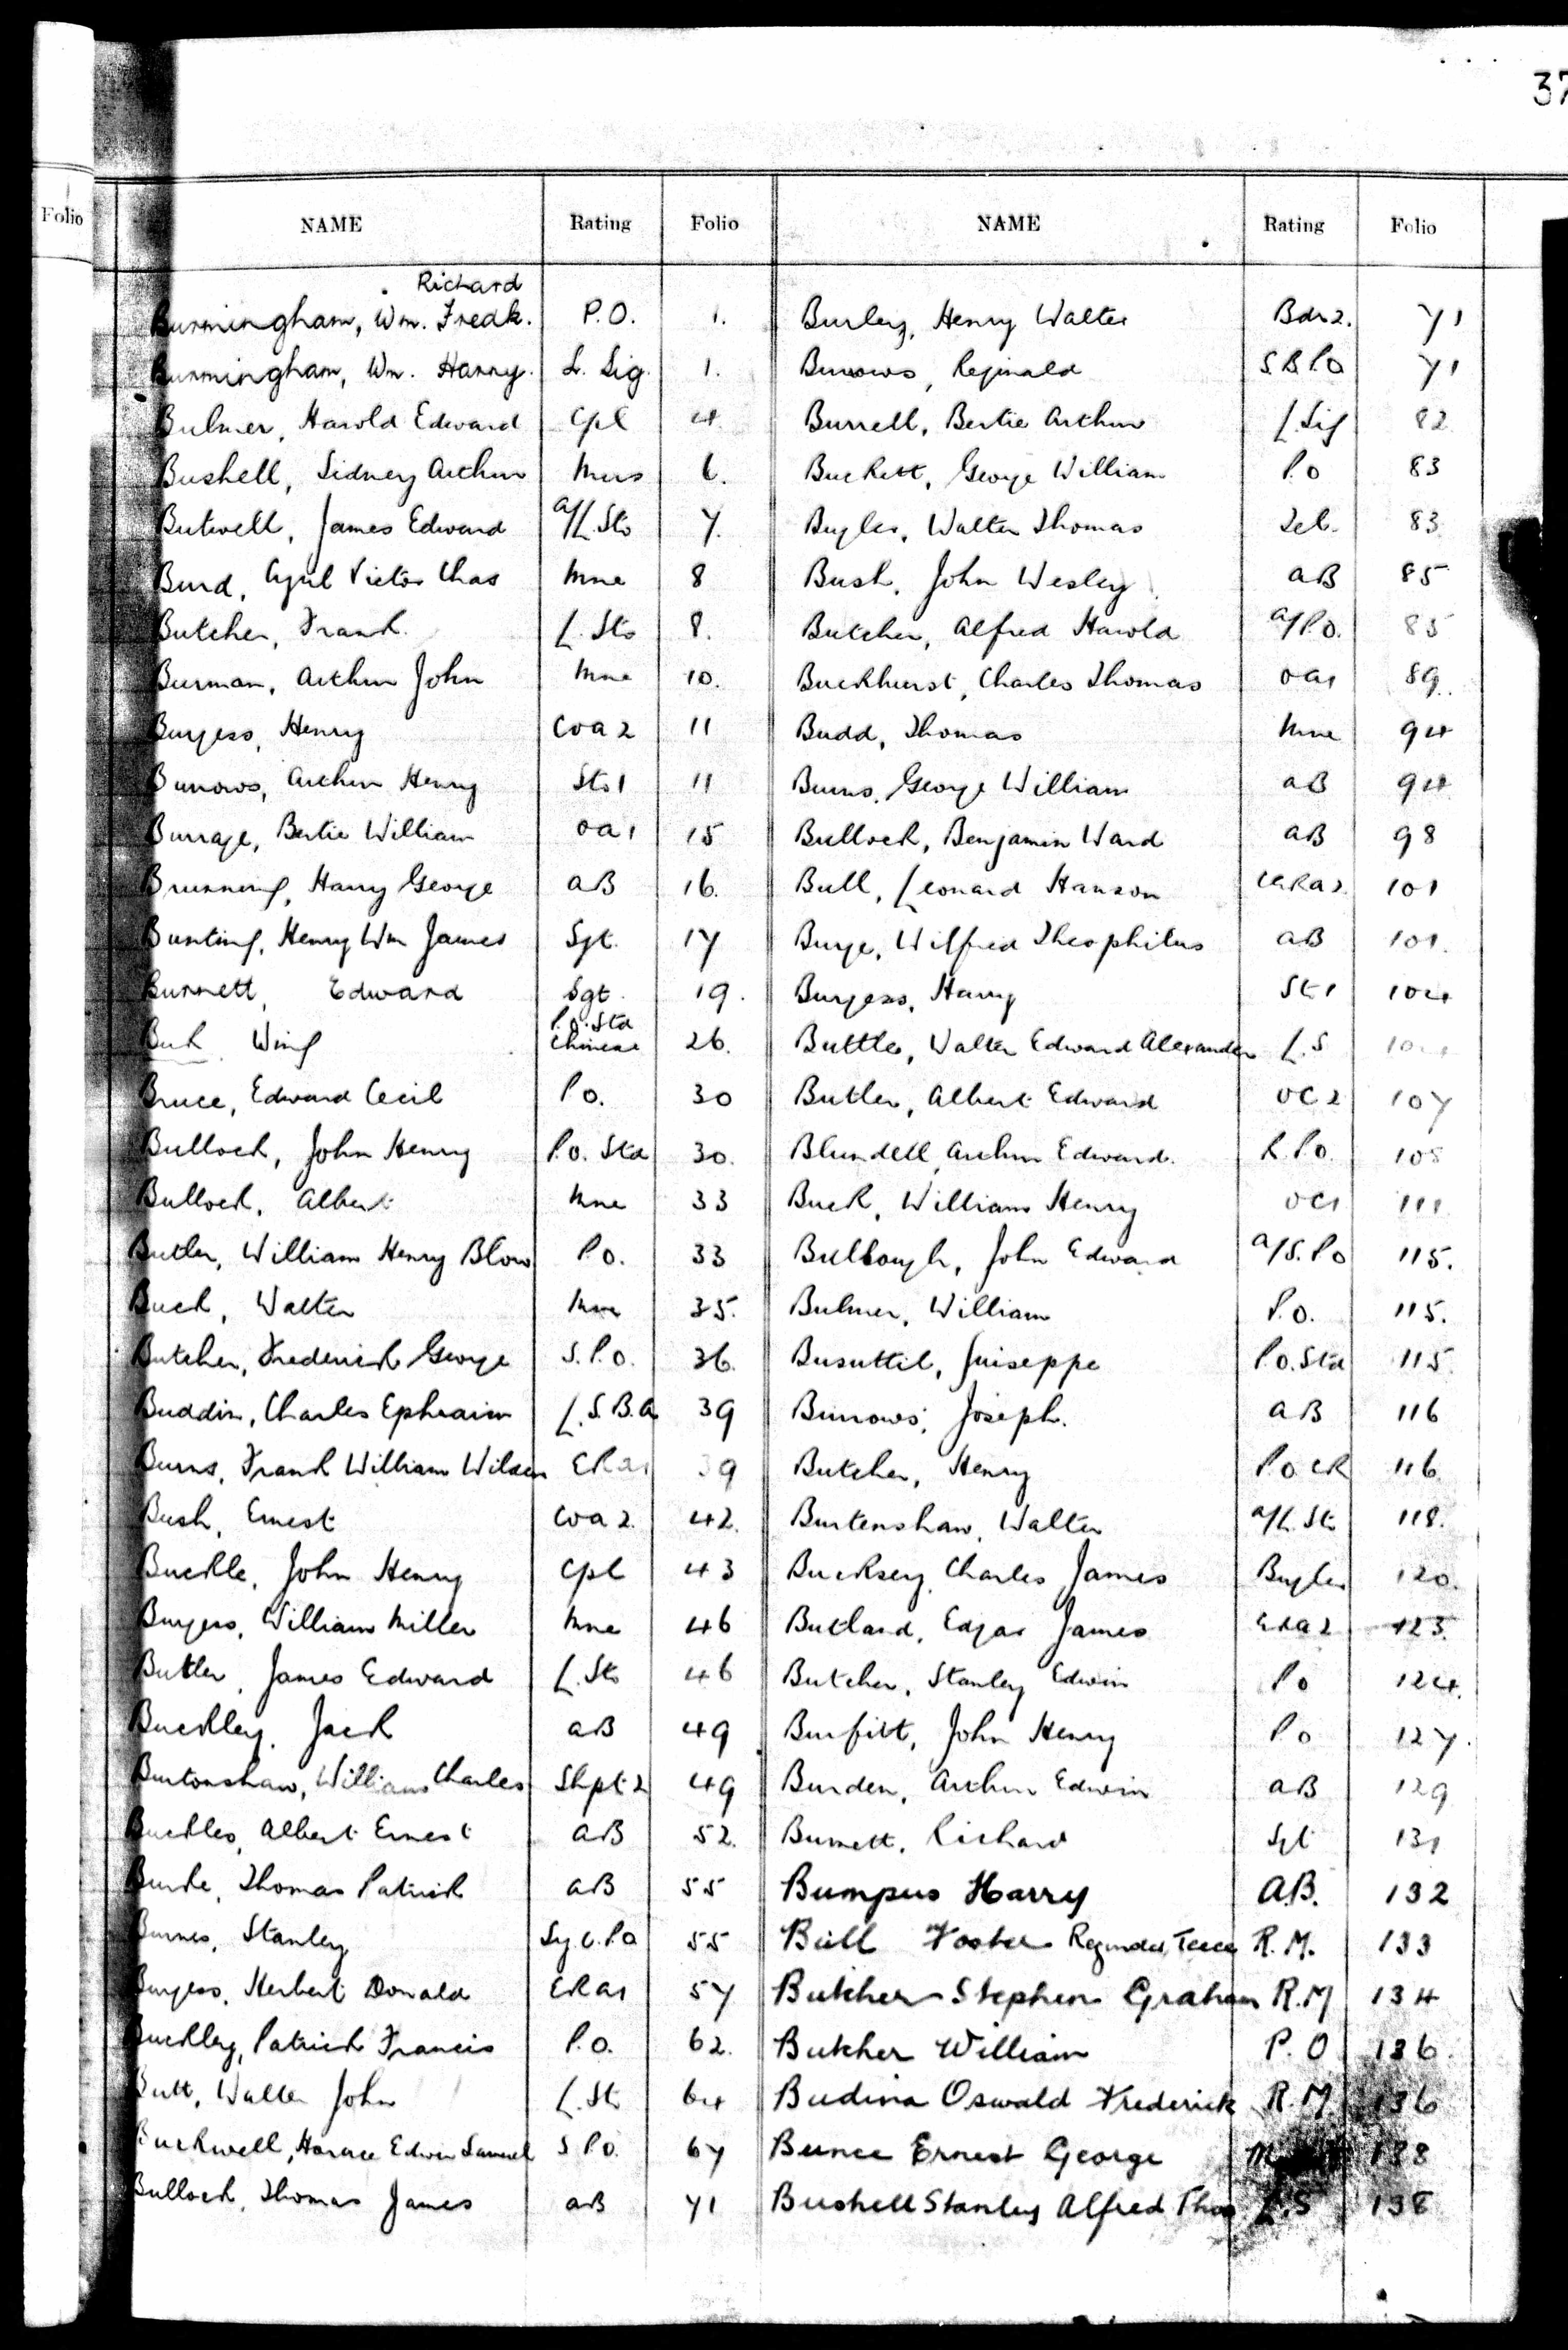 37
Folio
NAME Rating Folio
Richard
Burmingham, Wm. Fredk. P.O. 1.
Burmingham, Wm. Harry. L. Sig. 1.
Bulmer, Harold Edward Cpl 4
Bushell, Sidney Arthur Mus 6.
Butwell, James Edward a/L. Sto 7.
Burd, Cyril Victor Chas Mne 8
Butcher, Frank. L. Sto 8.
Burman, Arthur John Mne 10.
Burgess, Henry COA 2 11
Burrows, Arthur Henry Sto 1 11
Burrage, Bertie William OA 1 15
Brunning, Harry George AB 16.
Bunting, Henry Wm James Sgt. 17
Burnett, Edward Sgt. 19.
Buk Wing P.O. Std Chinese 26.
Bruce, Edward Cecil P.O. 30
Bullock, John Henry P.O. Std 30.
Bullock, Albert Mne 33
Butler, William Henry Blow P.O. 33
Buck, Walter Mne 35.
Butcher, Frederick George S.P.O. 36.
Buddin, Charles Ephraim L.S.B.A 39
Burns, Frank William Wilson ERA1 39
Bush, Ernest COA 2. 42.
Buckle, John Henry Cpl 43
Burgess, William Miller Mne 46
Butler, James Edward L. Sto 46
Buckley, Jack AB 49
Burtonshaw, William Charles Shpt 2 49
Buckles, Albert Ernest AB 52.
Burke, Thomas Patrick AB 55
Burnes, Stanley Sy C.P.O 55
Burgess, Herbert Donald ERA1 57
Buckley, Patrick Francis P.O. 62.
Butt, Walter John L. Sto 64
Buckwell, Horace Edwin Samuel S.P.O. 67
Bullock, Thomas James AB 71
NAME Rating Folio
Burley, Henry Walter Bdr 2. 71
Burrows, Reginald S.B.P.O 71
Burrell, Bertie Arthur L. Sig 82
Buckett, George William P.O 83
Bugler, Walter Thomas Tel. 83
Bush, John Wesley AB 85
Butcher, Alfred Harold a/P.O. 85
Buckhurst, Charles Thomas OA1 89.
Budd, Thomas Mne 94
Burns, George William AB 94
Bullock, Benjamin Ward AB 98
Bull, Leonard Hanson CERA 2 101
Burge, Wilfred Theophilus AB 101.
Burgess, Harry St 1 104
Buttle, Walter Edward Alexander L.S 104
Butler, Albert Edward OC 2 107
Blundell, Arthur Edward. R.P.O. 108
Buck, William Henry OC1 111
Bullough, John Edward a/S.P.O 115.
Bulmer, William P.O. 115.
Busuttil, Juiseppe P.O. Std 115.
Burrows, Joseph. AB 116
Butcher, Henry P.O. CK 116
Burtenshaw, Walter a/L. Sto 118.
Bucksey, Charles James Bugler 120.
Butland, Edgar James ERA 2 123.
Butcher, Stanley Edwin P.O 124.
Burfitt, John Henry P.O 127.
Burden, Arthur Edwin AB 129
Burnett, Richard Sgt 131
Bumpus Harry A.B. 132
Bull Foster Reginald R.M. 133
Butcher Stephen Graham R.M 134
Butcher William P.O 136.
Budina Oswald Frederick R.M. 136
Bunce Ernest George 138
Bushell Stanley Alfred Thos L.S 138